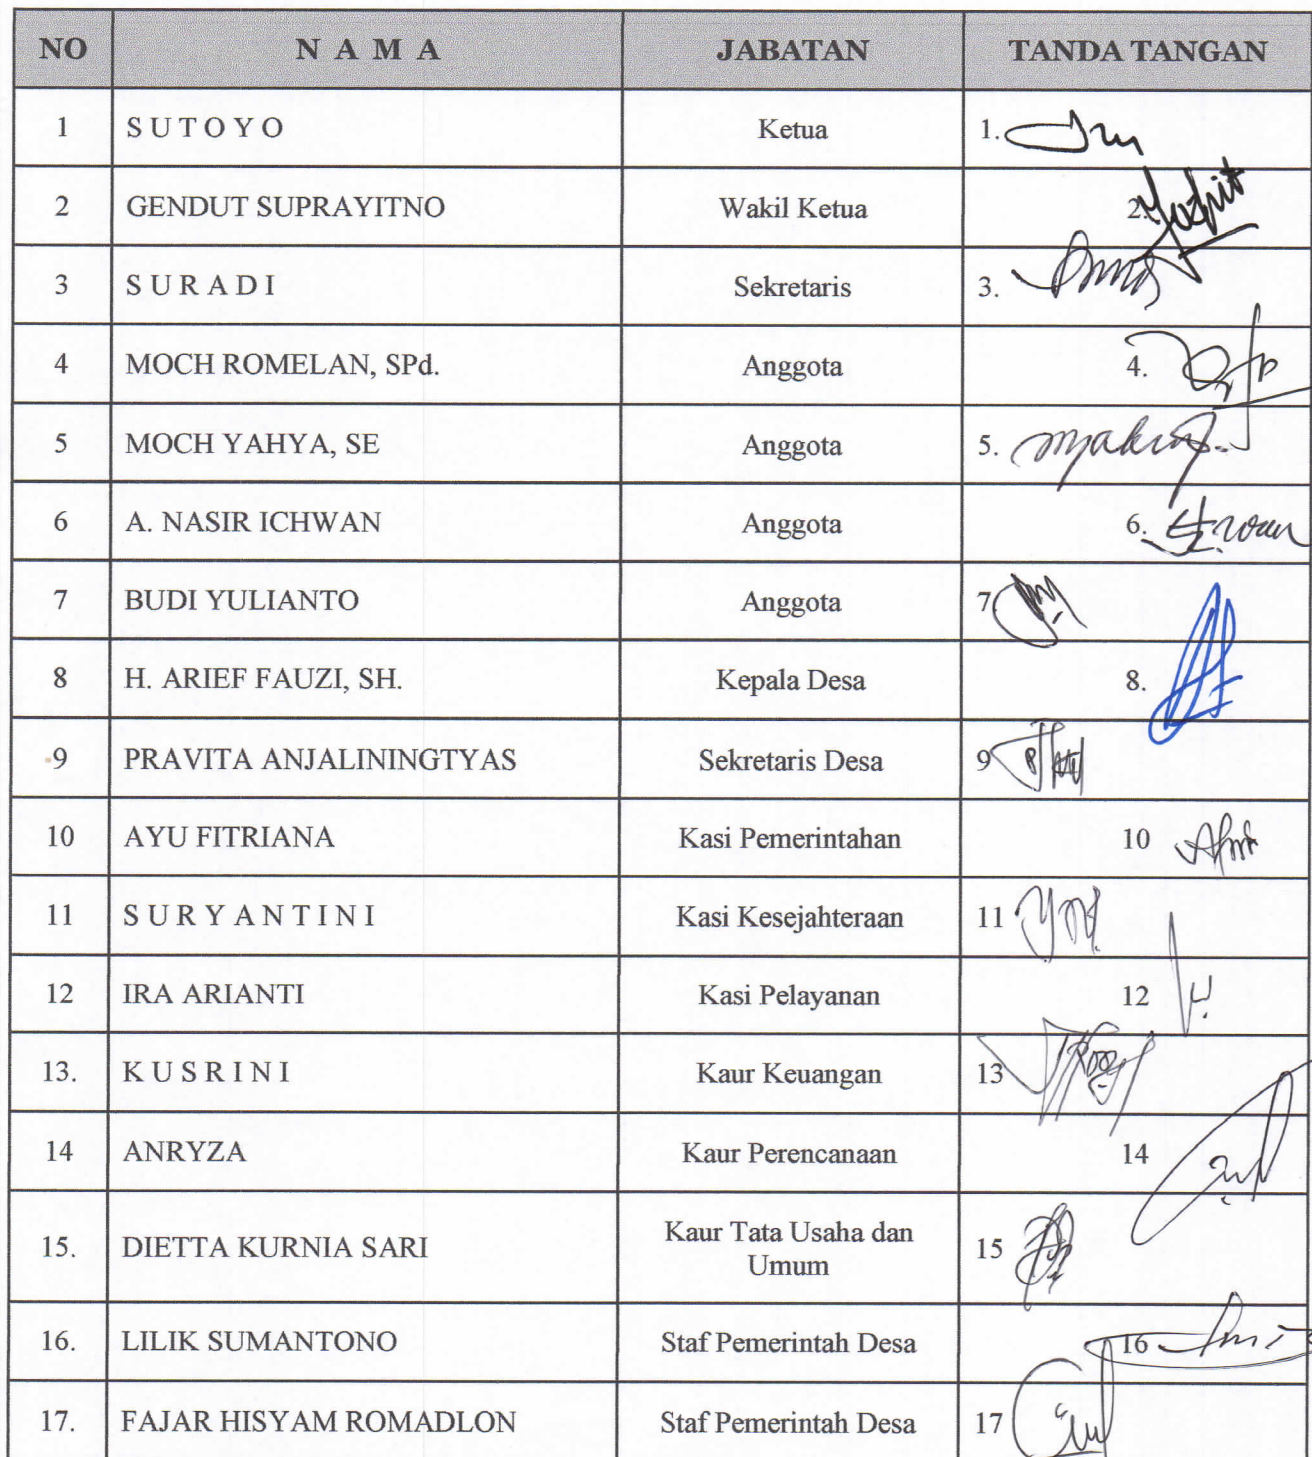 NO N A M A JABATAN TANDA TANGAN
1 S U T O Y O Ketua 1.
2 GENDUT SUPRAYITNO Wakil Ketua 2.
3 S U R A D I Sekretaris 3.
4 MOCH ROMELAN, SPd. Anggota 4.
5 MOCH YAHYA, SE Anggota 5.
6 A. NASIR ICHWAN Anggota 6.
7 BUDI YULIANTO Anggota 7
8 H. ARIEF FAUZI, SH. Kepala Desa 8.
9 PRAVITA ANJALININGTYAS Sekretaris Desa 9
10 AYU FITRIANA Kasi Pemerintahan 10
11 S U R Y A N T I N I Kasi Kesejahteraan 11
12 IRA ARIANTI Kasi Pelayanan 12
13. K U S R I N I Kaur Keuangan 13
14 ANRYZA Kaur Perencanaan 14
15. DIETTA KURNIA SARI Kaur Tata Usaha dan
Umum 15
16. LILIK SUMANTONO Staf Pemerintah Desa 16
17. FAJAR HISYAM ROMADLON Staf Pemerintah Desa 17